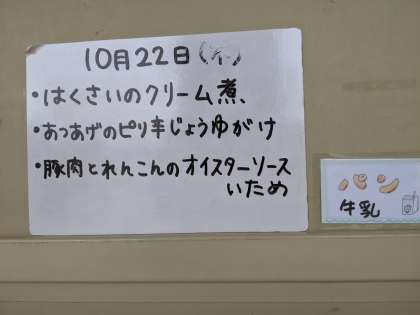 10月22日(木)
・はくさいのクリーム煮
・あつあげのピリ辛じょうゆがけ
・豚肉とれんこんのオイスターソース
いため
パン
牛乳